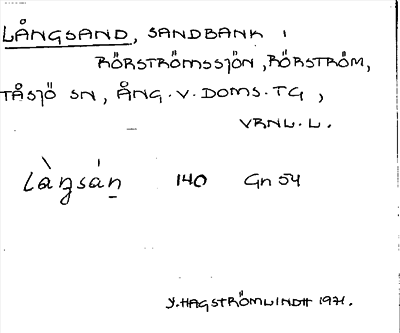 LÅNGSAND, SANDBANK I
RÖRSTRÖMSSJÖN, RÖRSTRÖM,
TÅSJÖ SN, ÅNG. V. DOMS. TG,
VRNL. L.
Làŋsán̠ 140 Gn 54
Y. HAGSTRÖM LINDH 1971.